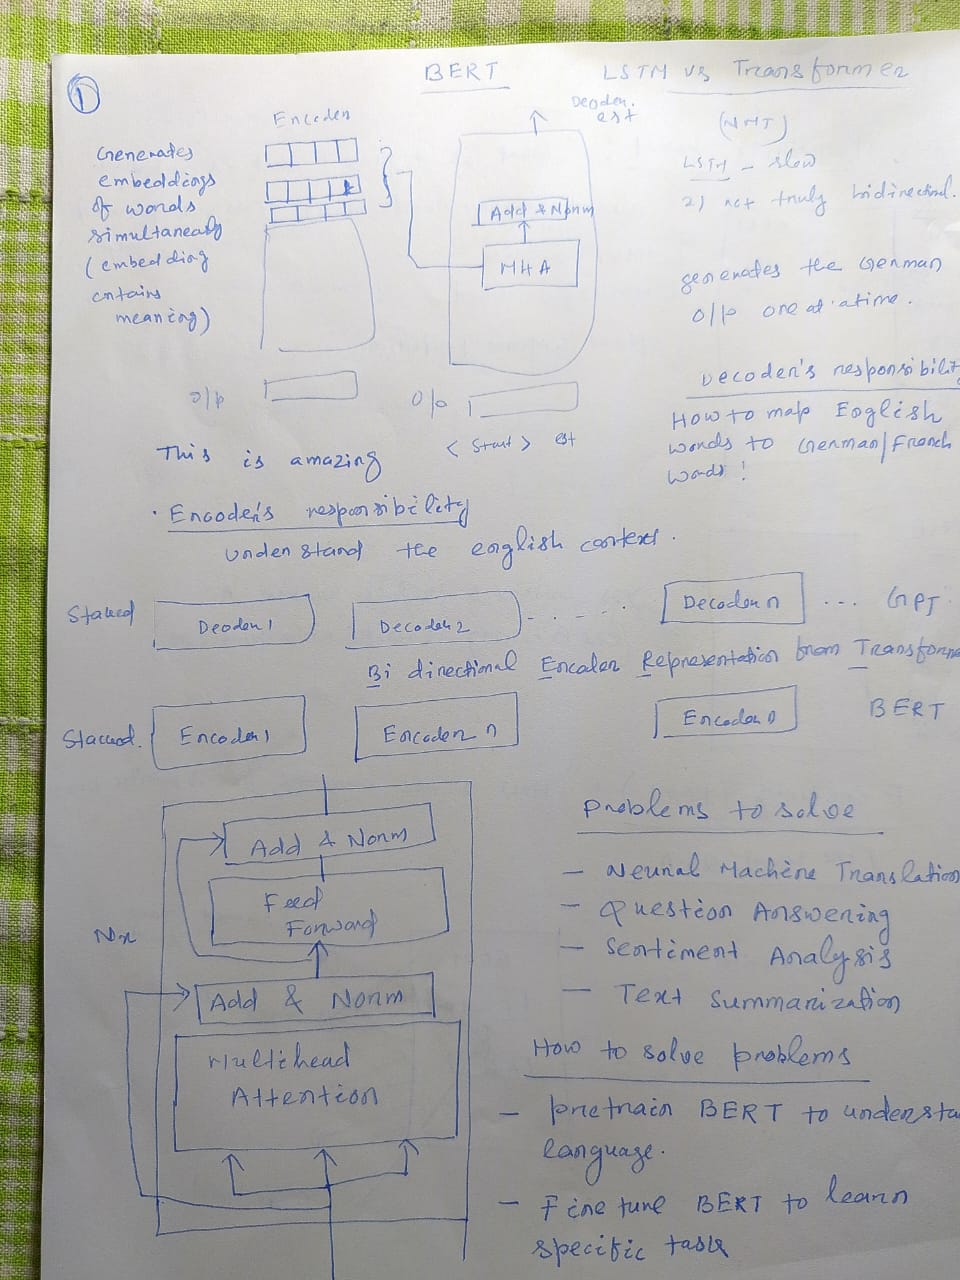 1
BERT
LSTM vs Transformer
Encoder
Generates
embeddings
of words
simultaneously
(embedding
contains
meaning)
Deoder.
est
Add & Norm
MHA
(NMT)
LSTM - slow
2) not truly bidirectional.
generates the German
o/p one at a time.
Decoder's responsibilit
How to map English
words to German/French
words!
o/p
o/p
<Start> est
This is amazing
. Encoder's responsibility
understand the english context.
Stacked
Deoder 1
Decoder 2
Decoder n
... GPT
Bi directional Encoder Representation from Transforme
Stacked.
Encoder 1
Encoder n
BERT
Nx
Add & Norm
Feed
Forward
Add & Norm
Multihead
Attention
Problems to solve
- Neural Machine Translation
- Question Answering
- Sentiment Analysis
- Text Summarization
How to solve problems
- pretrain BERT to understa
language.
- Fine tune BERT to learn
specific task